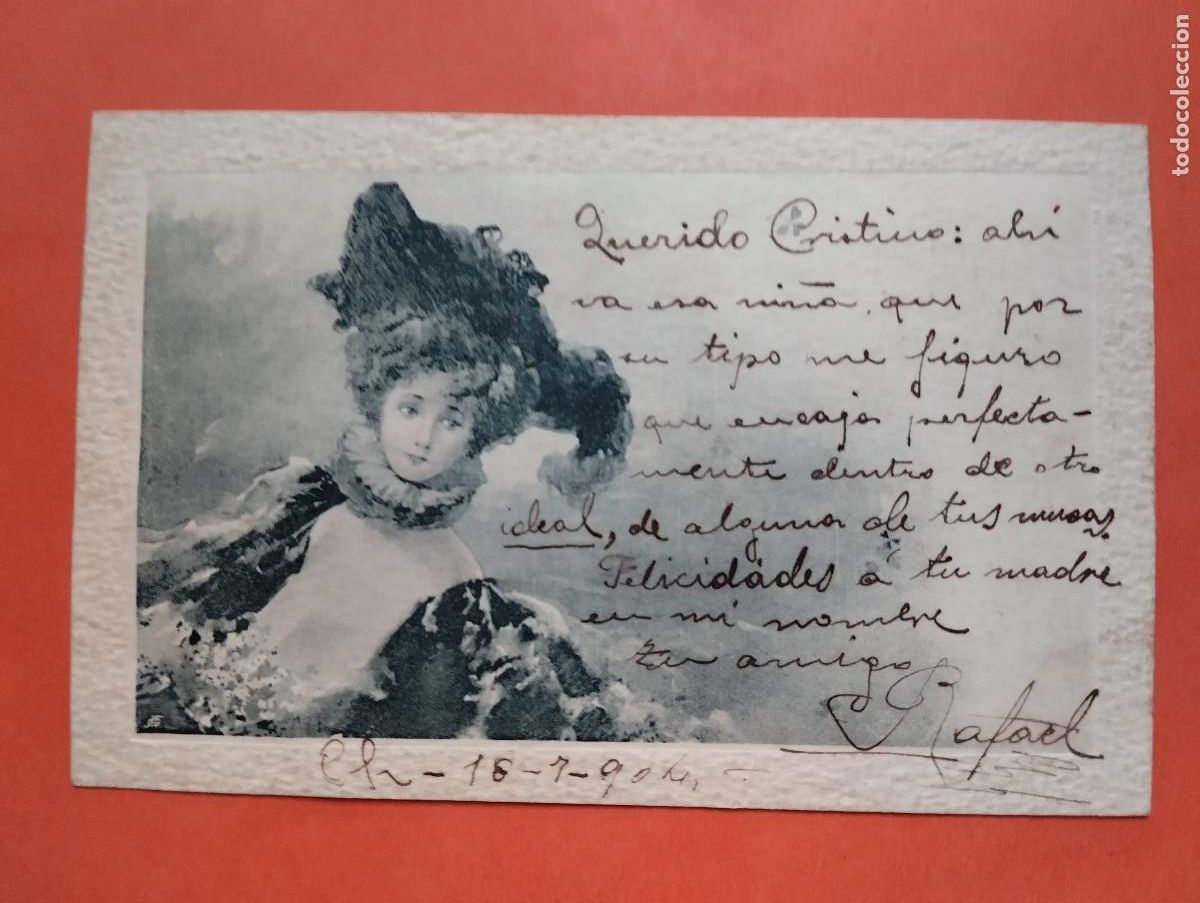 Querido Cristino: ahí
va esa niña, que por
su tipo me figuro
que encaja perfecta-
mente dentro de otro
ideal, de alguna de tus musas.
Felicidádes á tu madre
en mi nombre
tu amigo
Rafael
Ch - 16-7-904,
todocoleccion